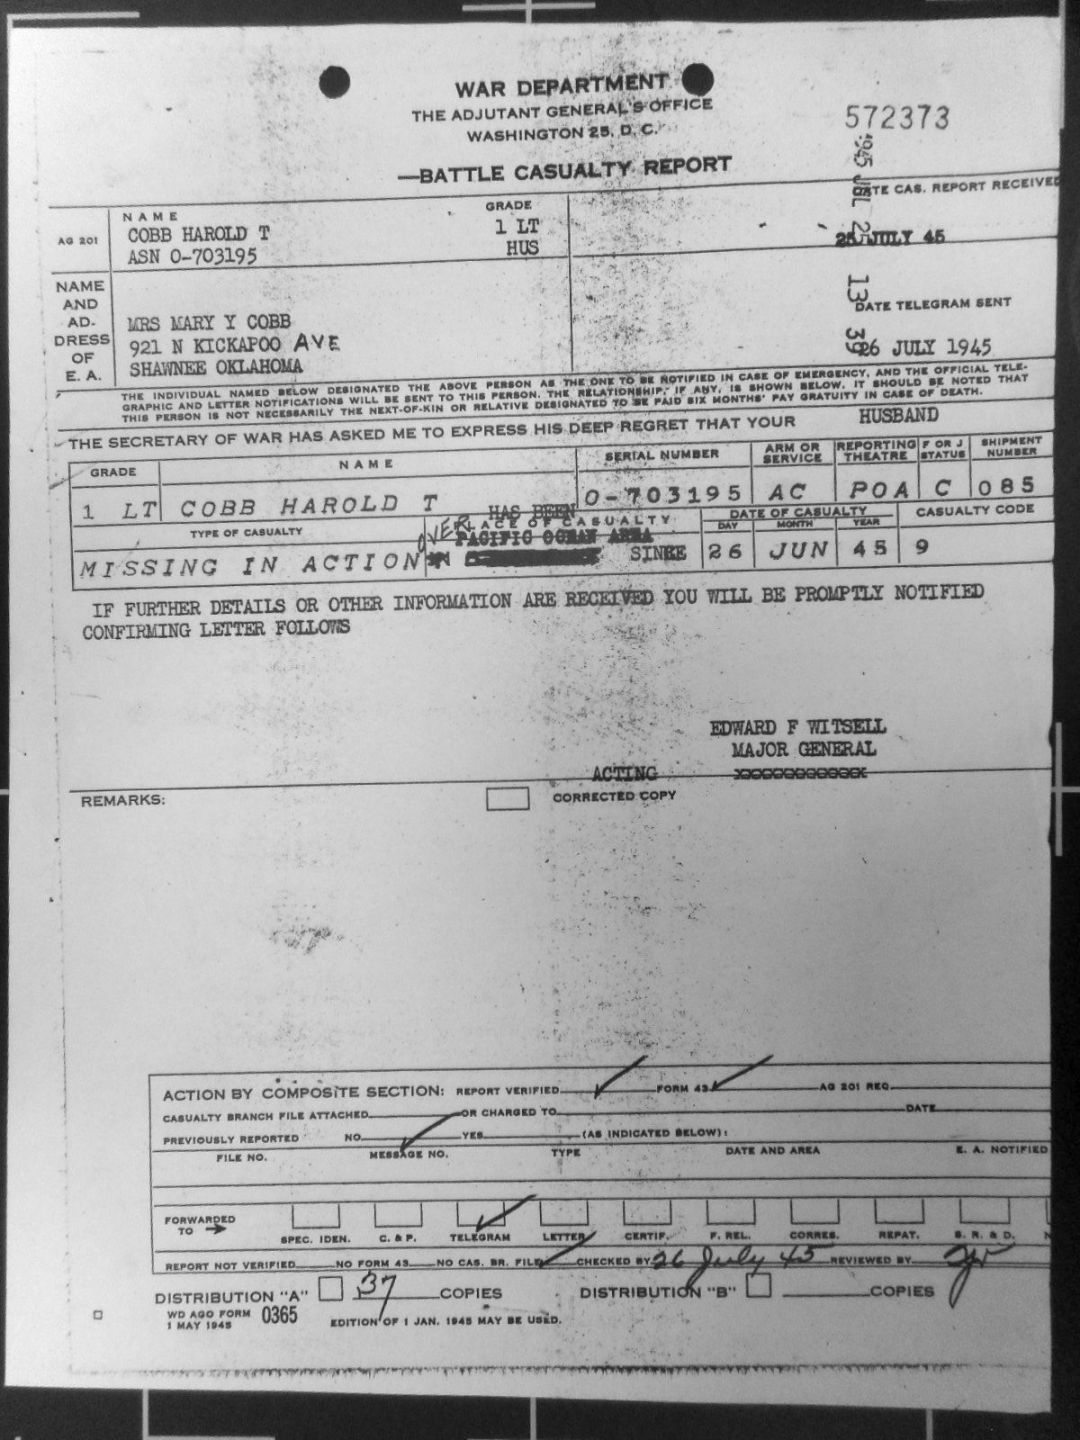 WAR DEPARTMENT
THE ADJUTANT GENERAL'S OFFICE
WASHINGTON 25, D. C.
572373
—BATTLE CASUALTY REPORT
1945 JUL 25
13 36
DATE CAS. REPORT RECEIVED
25 JULY 45
AG 201
NAME
GRADE
COBB HAROLD T
1 LT
ASN O-703195
HUS
NAME AND AD-DRESS OF E. A.
DATE TELEGRAM SENT
MRS MARY Y COBB
921 N KICKAPOO AVE
26 JULY 1945
SHAWNEE OKLAHOMA
THE INDIVIDUAL NAMED BELOW DESIGNATED THE ABOVE PERSON AS THE ONE TO BE NOTIFIED IN CASE OF EMERGENCY, AND THE OFFICIAL TELE-
GRAPHIC AND LETTER NOTIFICATIONS WILL BE SENT TO THIS PERSON. THE RELATIONSHIP, IF ANY, IS SHOWN BELOW. IT SHOULD BE NOTED THAT
THIS PERSON IS NOT NECESSARILY THE NEXT-OF-KIN OR RELATIVE DESIGNATED TO BE PAID SIX MONTHS' PAY GRATUITY IN CASE OF DEATH.
THE SECRETARY OF WAR HAS ASKED ME TO EXPRESS HIS DEEP REGRET THAT YOUR HUSBAND
GRADE NAME SERIAL NUMBER ARM OR SERVICE REPORTING THEATRE F OR J STATUS SHIPMENT NUMBER
1 LT COBB HAROLD T O-703195 AC POA C 085
HAS BEEN
TYPE OF CASUALTY PLACE OF CASUALTY DATE OF CASUALTY CASUALTY CODE
DAY MONTH YEAR
OVER PACIFIC OCEAN AREA
MISSING IN ACTION IN SINCE 26 JUN 45 9
IF FURTHER DETAILS OR OTHER INFORMATION ARE RECEIVED YOU WILL BE PROMPTLY NOTIFIED
CONFIRMING LETTER FOLLOWS
EDWARD F WITSELL
MAJOR GENERAL
ACTING XXXXXXXXXXXXX
REMARKS: CORRECTED COPY
ACTION BY COMPOSITE SECTION: REPORT VERIFIED FORM 43 AG 201 REQ
CASUALTY BRANCH FILE ATTACHED OR CHARGED TO DATE
PREVIOUSLY REPORTED NO YES (AS INDICATED BELOW):
FILE NO. MESSAGE NO. TYPE DATE AND AREA E. A. NOTIFIED
FORWARDED TO →
SPEC. IDEN. C. & P. TELEGRAM LETTER CERTIF. F. REL. CORRES. REPAT. S. R. & D. N
REPORT NOT VERIFIED NO FORM 43 NO CAS. BR. FILE CHECKED BY 26 July 45 REVIEWED BY
DISTRIBUTION "A" 37 COPIES DISTRIBUTION "B" COPIES
WD AGO FORM 0365
1 MAY 1945
EDITION OF 1 JAN. 1945 MAY BE USED.